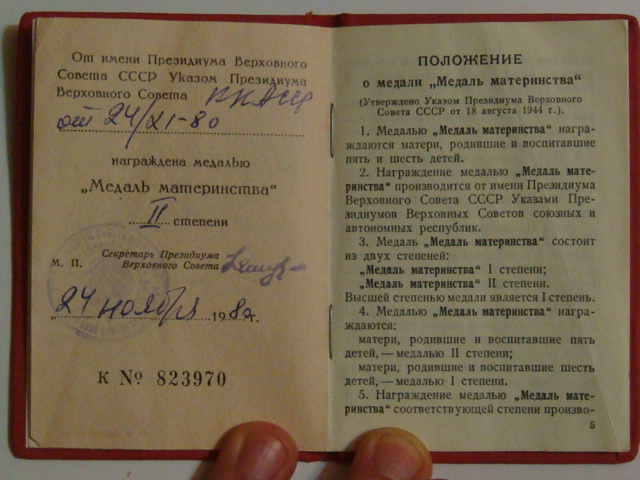 От имени Президиума Верховного
Совета СССР Указом Президиума
Верховного Совета ККАССР
от 24/XI-80
награждена медалью
„Медаль материнства“
II степени
Секретарь Президиума
М. П. Верховного Совета
„24 ноября 1980г.
К № 823970
ПОЛОЖЕНИЕ
о медали „Медаль материнства“
(Утверждено Указом Президиума Верховного
Совета СССР от 18 августа 1944 г.).
1. Медалью „Медаль материнства“ награ-
ждаются матери, родившие и воспитавшие
пять и шесть детей.
2. Награждение медалью „Медаль мате-
ринства“ производится от имени Президиума
Верховного Совета СССР Указами Пре-
зидиумов Верховных Советов союзных и
автономных республик.
3. Медаль „Медаль материнства“ состоит
из двух степеней:
„Медаль материнства“ I степени;
„Медаль материнства“ II степени.
Высшей степенью медали является I степень.
4. Медалью „Медаль материнства“ награ-
ждаются:
матери, родившие и воспитавшие пять
детей, — медалью II степени;
матери, родившие и воспитавшие шесть
детей, — медалью I степени.
5. Награждение медалью „Медаль мате-
ринства“ соответствующей степени произво-
5